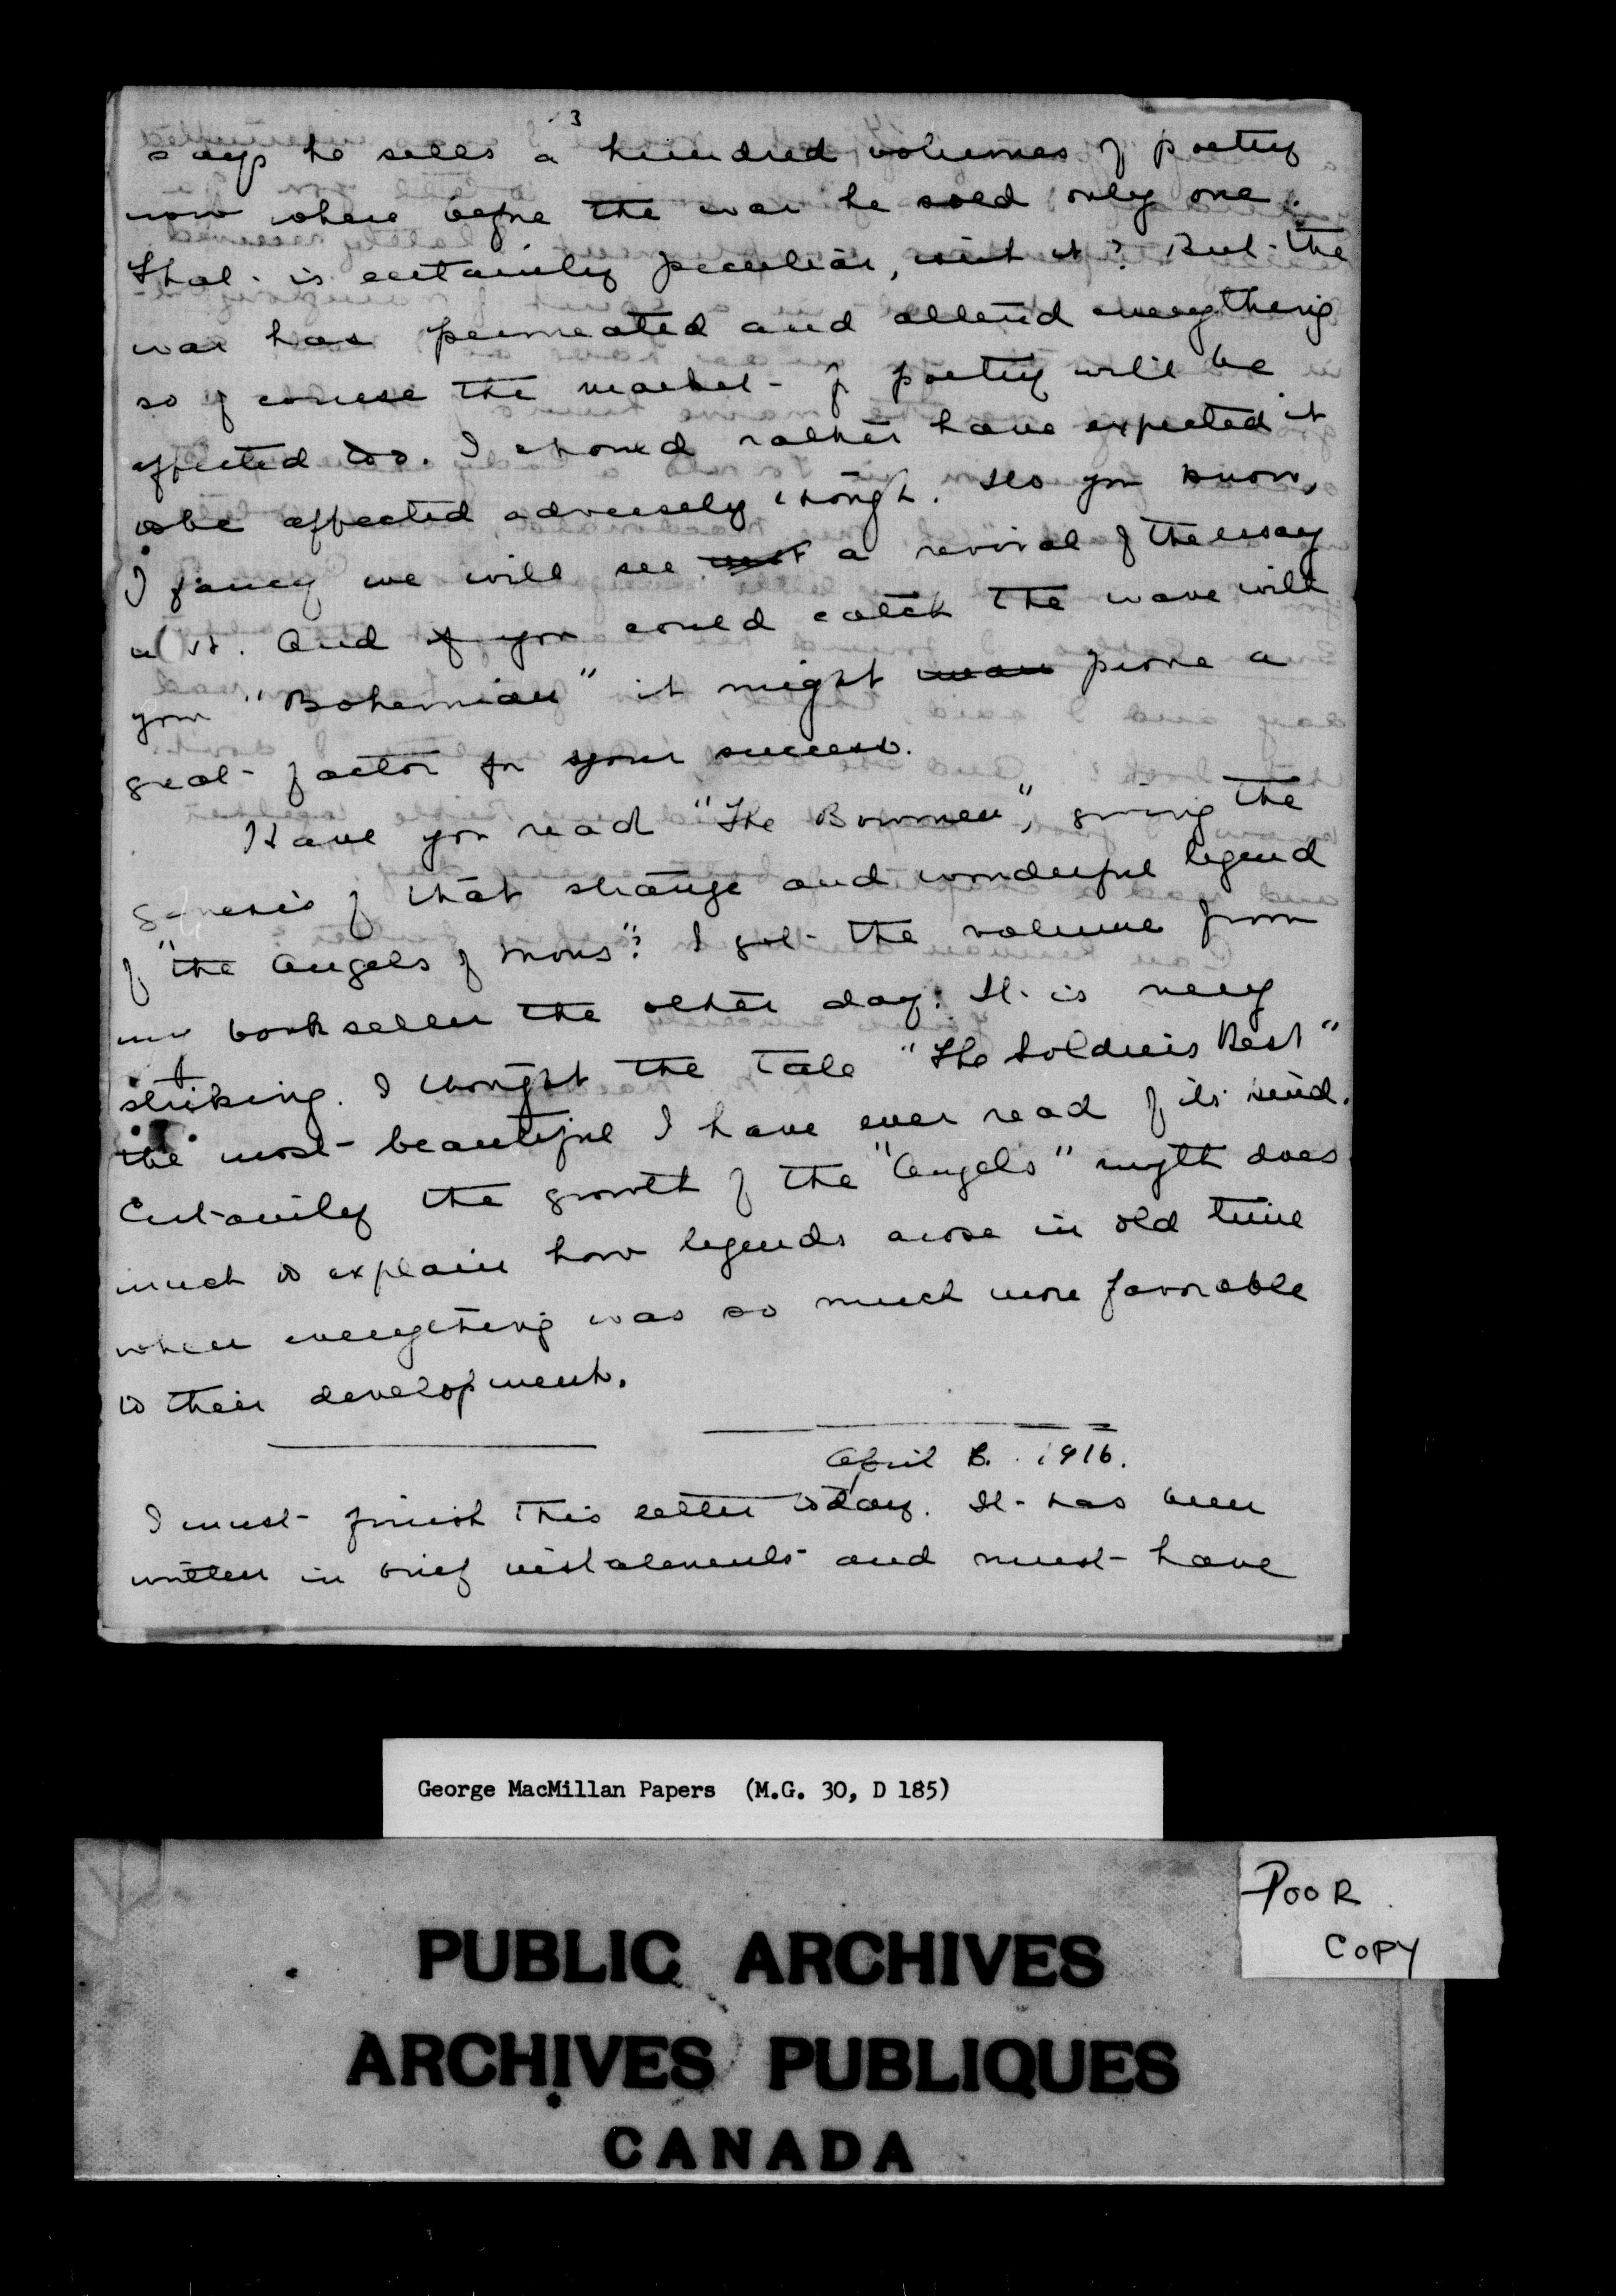 3
says he sells a hundred volumes of poetry
now where before the war he sold only one.
That is certainly peculiar, isn't it? But the
war has permeated and altered everything
so of course the market of poetry will be
affected too. I should rather have expected it
to be affected adversely though. Do you know,
I fancy we will see a revival of the essay
after it. And if you could catch the wave with
your "Bohemian" it might prove a
great factor for your success.
Have you read "The Bowmen", giving the
genesis of that strange and wonderful legend
of "the Angels of Mons"? I got the volume from
my bookseller the other day. It is very
striking. I thought the tale "The Soldiers Rest"
the most beautiful I have ever read of its kind.
Certainly the growth of the "Angels" myth does
much to explain how legends arose in old time
when everything was so much more favorable
to their development.
April 1916.
I must finish this letter today. It has been
written in brief instalments and must have
George MacMillan Papers (M.G. 30, D 185)
POOR
COPY
PUBLIC ARCHIVES
ARCHIVES PUBLIQUES
CANADA